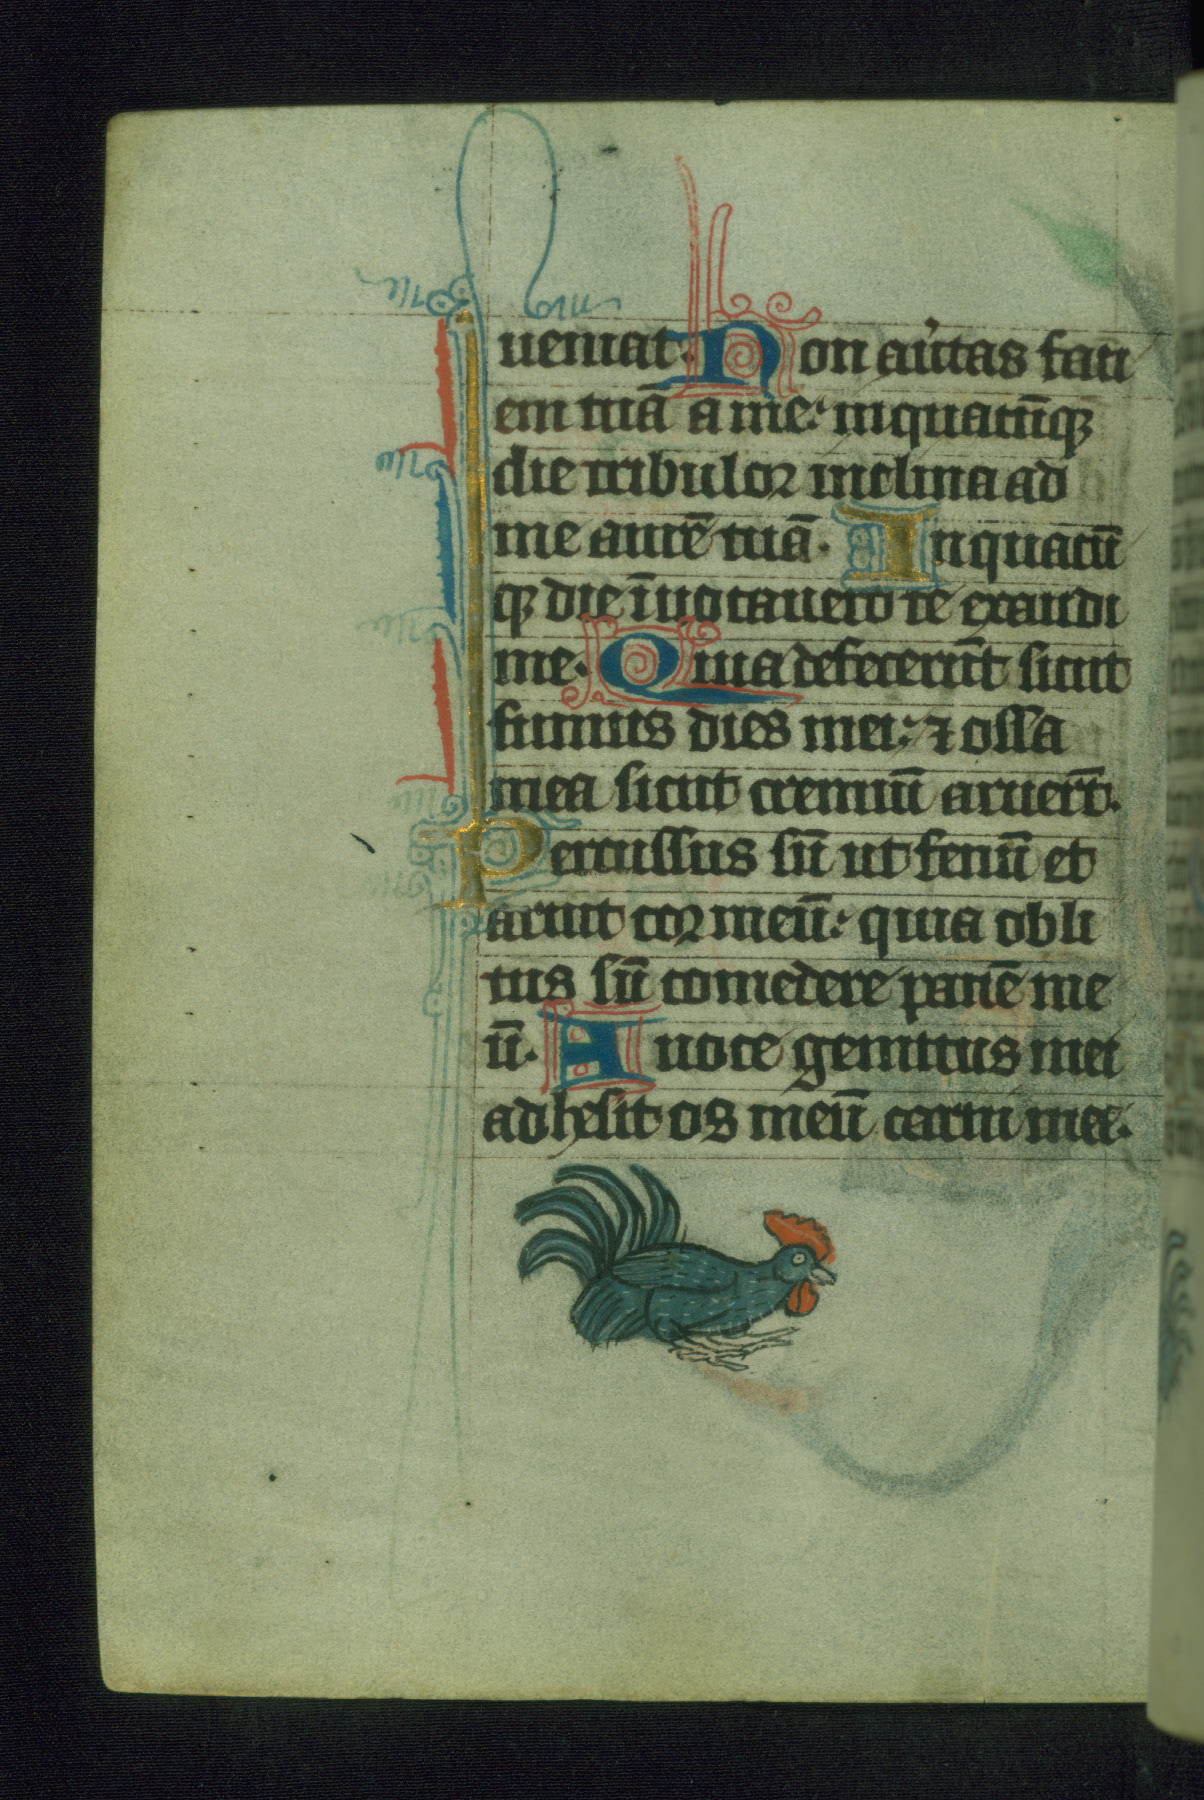 ueniat. Non au᷑tas faci
em tuā a me: in quacūqꝫ
die tribulor inclina ad
me aurē tuā. In quacū
qꝫ die īuocauero te exaudi
me. Quia defecerūt sicut
fumus dies mei: ⁊ ossa
mea sicut cremiū aruerūt.
Percussus sū ut fenū et
aruit cor meū: quia obli
tus sū comedere panē me
ū. A uoce gemitus mei
adhesit os meū carni mee.